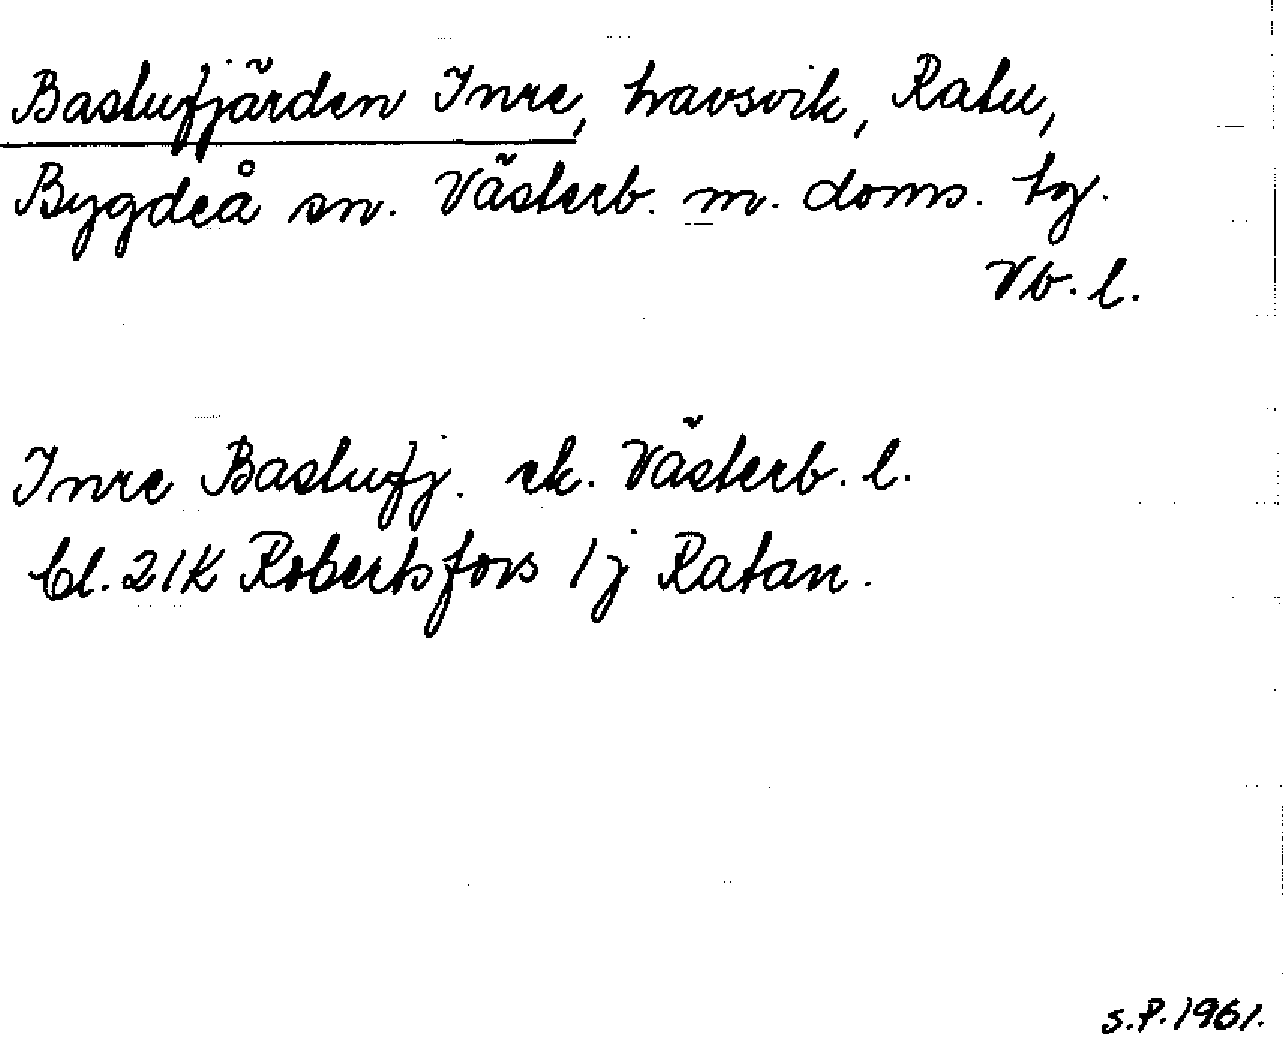 Bastufjärden Inre, havsvik, Ratu,
Bygdeå sn. Västerb. m. doms. tg.
Vb. l.
Inre Bastufj. ek. Västerb. l.
bl. 21K Robertsfors 1j Ratan.
S.P. 1961.